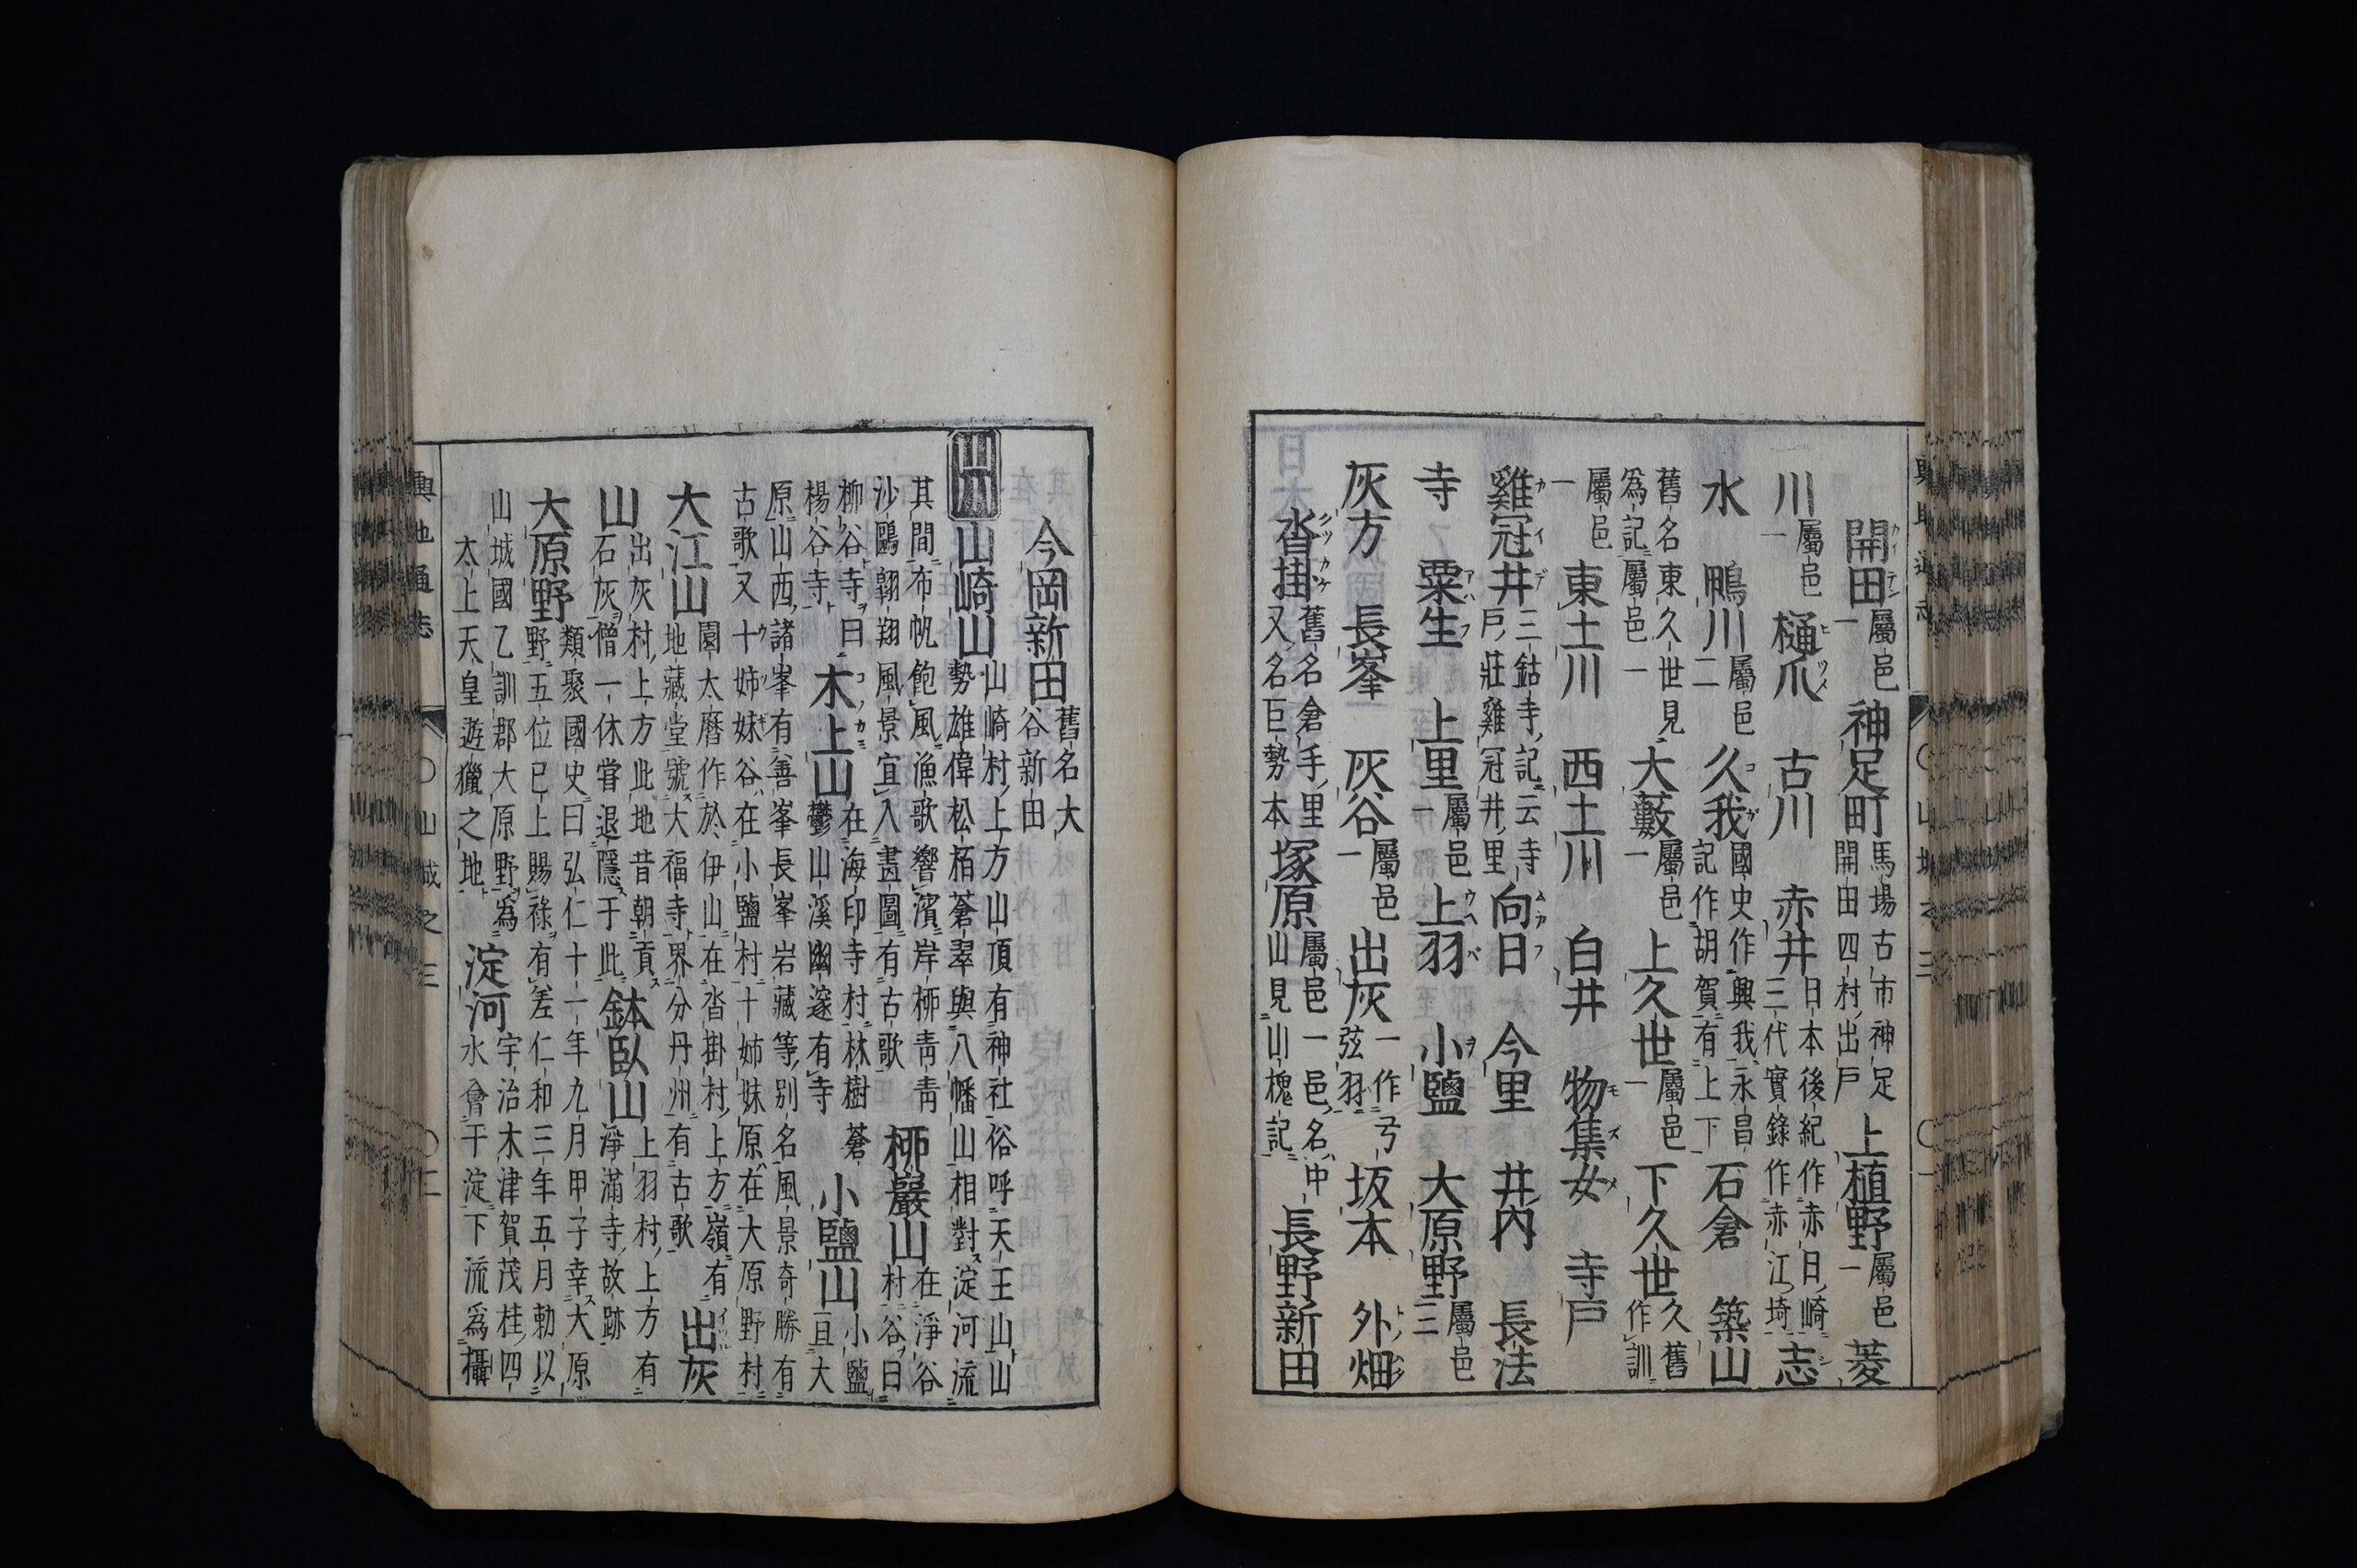 開田屬邑一神足町馬場古市神足開田四村出戸上植野屬邑一菱
川屬邑一樋爪古川赤井日本後紀作赤日崎三代實録作赤江埼志
水鴨川屬邑二久我國史作興我永昌記作胡賀有上下石倉築山
舊名東久世見為記屬邑一大藪屬邑一上久世屬邑一下久世久舊作訓
屬邑一東土川西土川白井物集女寺戸
雞冠井三鈷寺記云寺戸莊雞冠井里向日今里井內長法
寺粟生上里屬邑一上羽小鹽大原野屬邑三
灰方長峯灰谷屬邑一出灰一作弓弦羽坂本外畑
沓掛舊名倉手里又名巨勢本塚原屬邑一邑名中山見山槐記長野新田
今岡新田舊名大谷新田
山川山崎山山崎村上方山頂有神社俗呼天王山山勢雄偉松栢蒼翠與八幡山相對淀河流
其間布帆飽風漁歌響濱岸柳靑靑沙鷗翱翔風景宜入畫圖有古歌柳巖山在淨谷村
柳谷寺曰楊谷寺木上山在海印寺村林樹蒼鬱山溪幽邃有寺小鹽山小鹽亘大
原山西諸峯有善峯長峯岩藏等別名風景奇勝有古歌又十姉妹谷在小鹽村十姉妹原在大原野村
大江山園太曆作於伊山在沓掛村上方嶺有地藏堂號大福寺界分丹州有古歌出灰
山出灰村上方此地昔朝貢石灰僧一休甞退隱于此鉢臥山上羽村上方有淨滿寺故跡
大原野類聚國史曰弘仁十一年九月甲子幸大原野五位已上賜祿有差仁和三年五月勅以
山城國乙訓郡大原野為太上天皇遊獵之地淀河宇治木津賀茂桂四水會于淀下流爲攝
輿地通志
○山城之三
○二